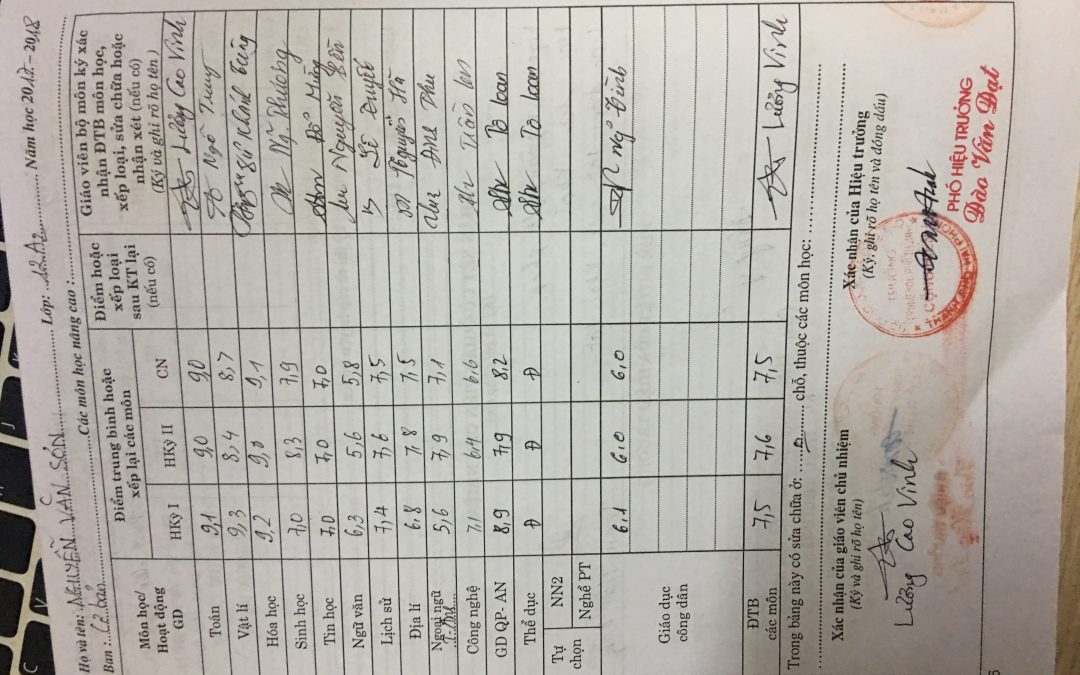 Họ và tên: NGUYỄN VĂN SƠN Lớp: 12A2 Năm học 2017 - 2018
Ban: Cơ bản Các môn học nâng cao:
Môn học/ Hoạt động GD
Điểm trung bình hoặc xếp lại các môn
Điểm hoặc xếp loại sau KT lại (nếu có)
Giáo viên bộ môn ký xác nhận ĐTB môn học, xếp loại, sửa chữa hoặc nhận xét (nếu có)
(Ký và ghi rõ họ tên)
HKỳ I HKỳ II CN
Toán 9,1 9,0 9,0 Lương Cao Vinh
Vật lí 9,3 8,4 8,7 Ngô Trung
Hóa học 9,2 9,0 9,1
Sinh học 7,0 8,3 7,9 Ng Phương
Tin học 7,0 7,0 7,0
Ngữ văn 6,3 5,6 5,8 Nguyễn
Lịch sử 7,4 7,6 7,5 Lê
Địa lí 6,8 7,8 7,5 Nguyễn Hà
Ngoại ngữ T. Anh 5,6 7,9 7,1
Công nghệ 7,1 6,4 6,6 Trần
GD QP- AN 8,9 7,9 8,2 Tô Loan
Thể dục Đ Đ Đ Tô Loan
Tự chọn NN2
Nghề PT
Giáo dục công dân 6,1 6,0 6,0 Ngô Đình
ĐTB các môn 7,5 7,6 7,5 Lương Vinh
Trong bảng này có sửa chữa ở: chỗ, thuộc các môn học:
Xác nhận của giáo viên chủ nhiệm
(Ký và ghi rõ họ tên)
Lương Cao Vinh
Xác nhận của Hiệu trưởng
(Ký, ghi rõ họ tên và đóng dấu)
PHÓ HIỆU TRƯỞNG
Đào Văn Đạt